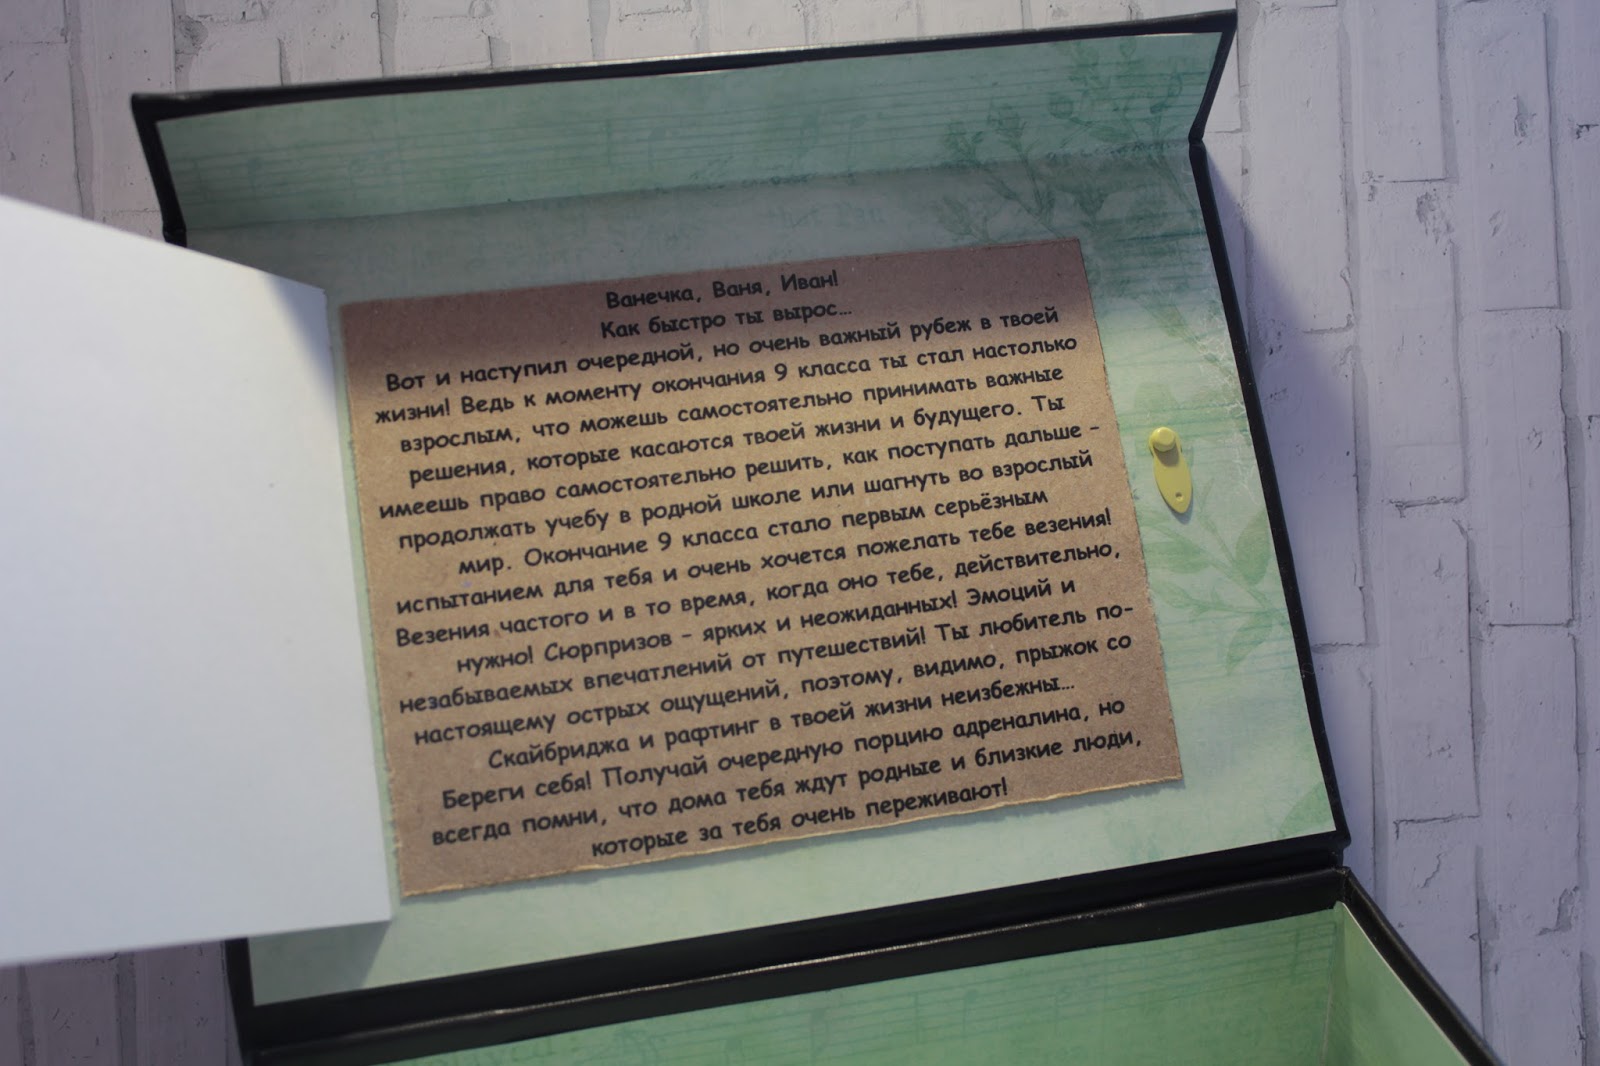 Ванечка, Ваня, Иван!
Как быстро ты вырос...
Вот и наступил очередной, но очень важный рубеж в твоей
жизни! Ведь к моменту окончания 9 класса ты стал настолько
взрослым, что можешь самостоятельно принимать важные
решения, которые касаются твоей жизни и будущего. Ты
имеешь право самостоятельно решить, как поступать дальше –
продолжать учебу в родной школе или шагнуть во взрослый
мир. Окончание 9 класса стало первым серьёзным
испытанием для тебя и очень хочется пожелать тебе везения!
Везения частого и в то время, когда оно тебе, действительно,
нужно! Сюрпризов – ярких и неожиданных! Эмоций и
незабываемых впечатлений от путешествий! Ты любитель по-
настоящему острых ощущений, поэтому, видимо, прыжок со
Скайбриджа и рафтинг в твоей жизни неизбежны...
Береги себя! Получай очередную порцию адреналина, но
всегда помни, что дома тебя ждут родные и близкие люди,
которые за тебя очень переживают!